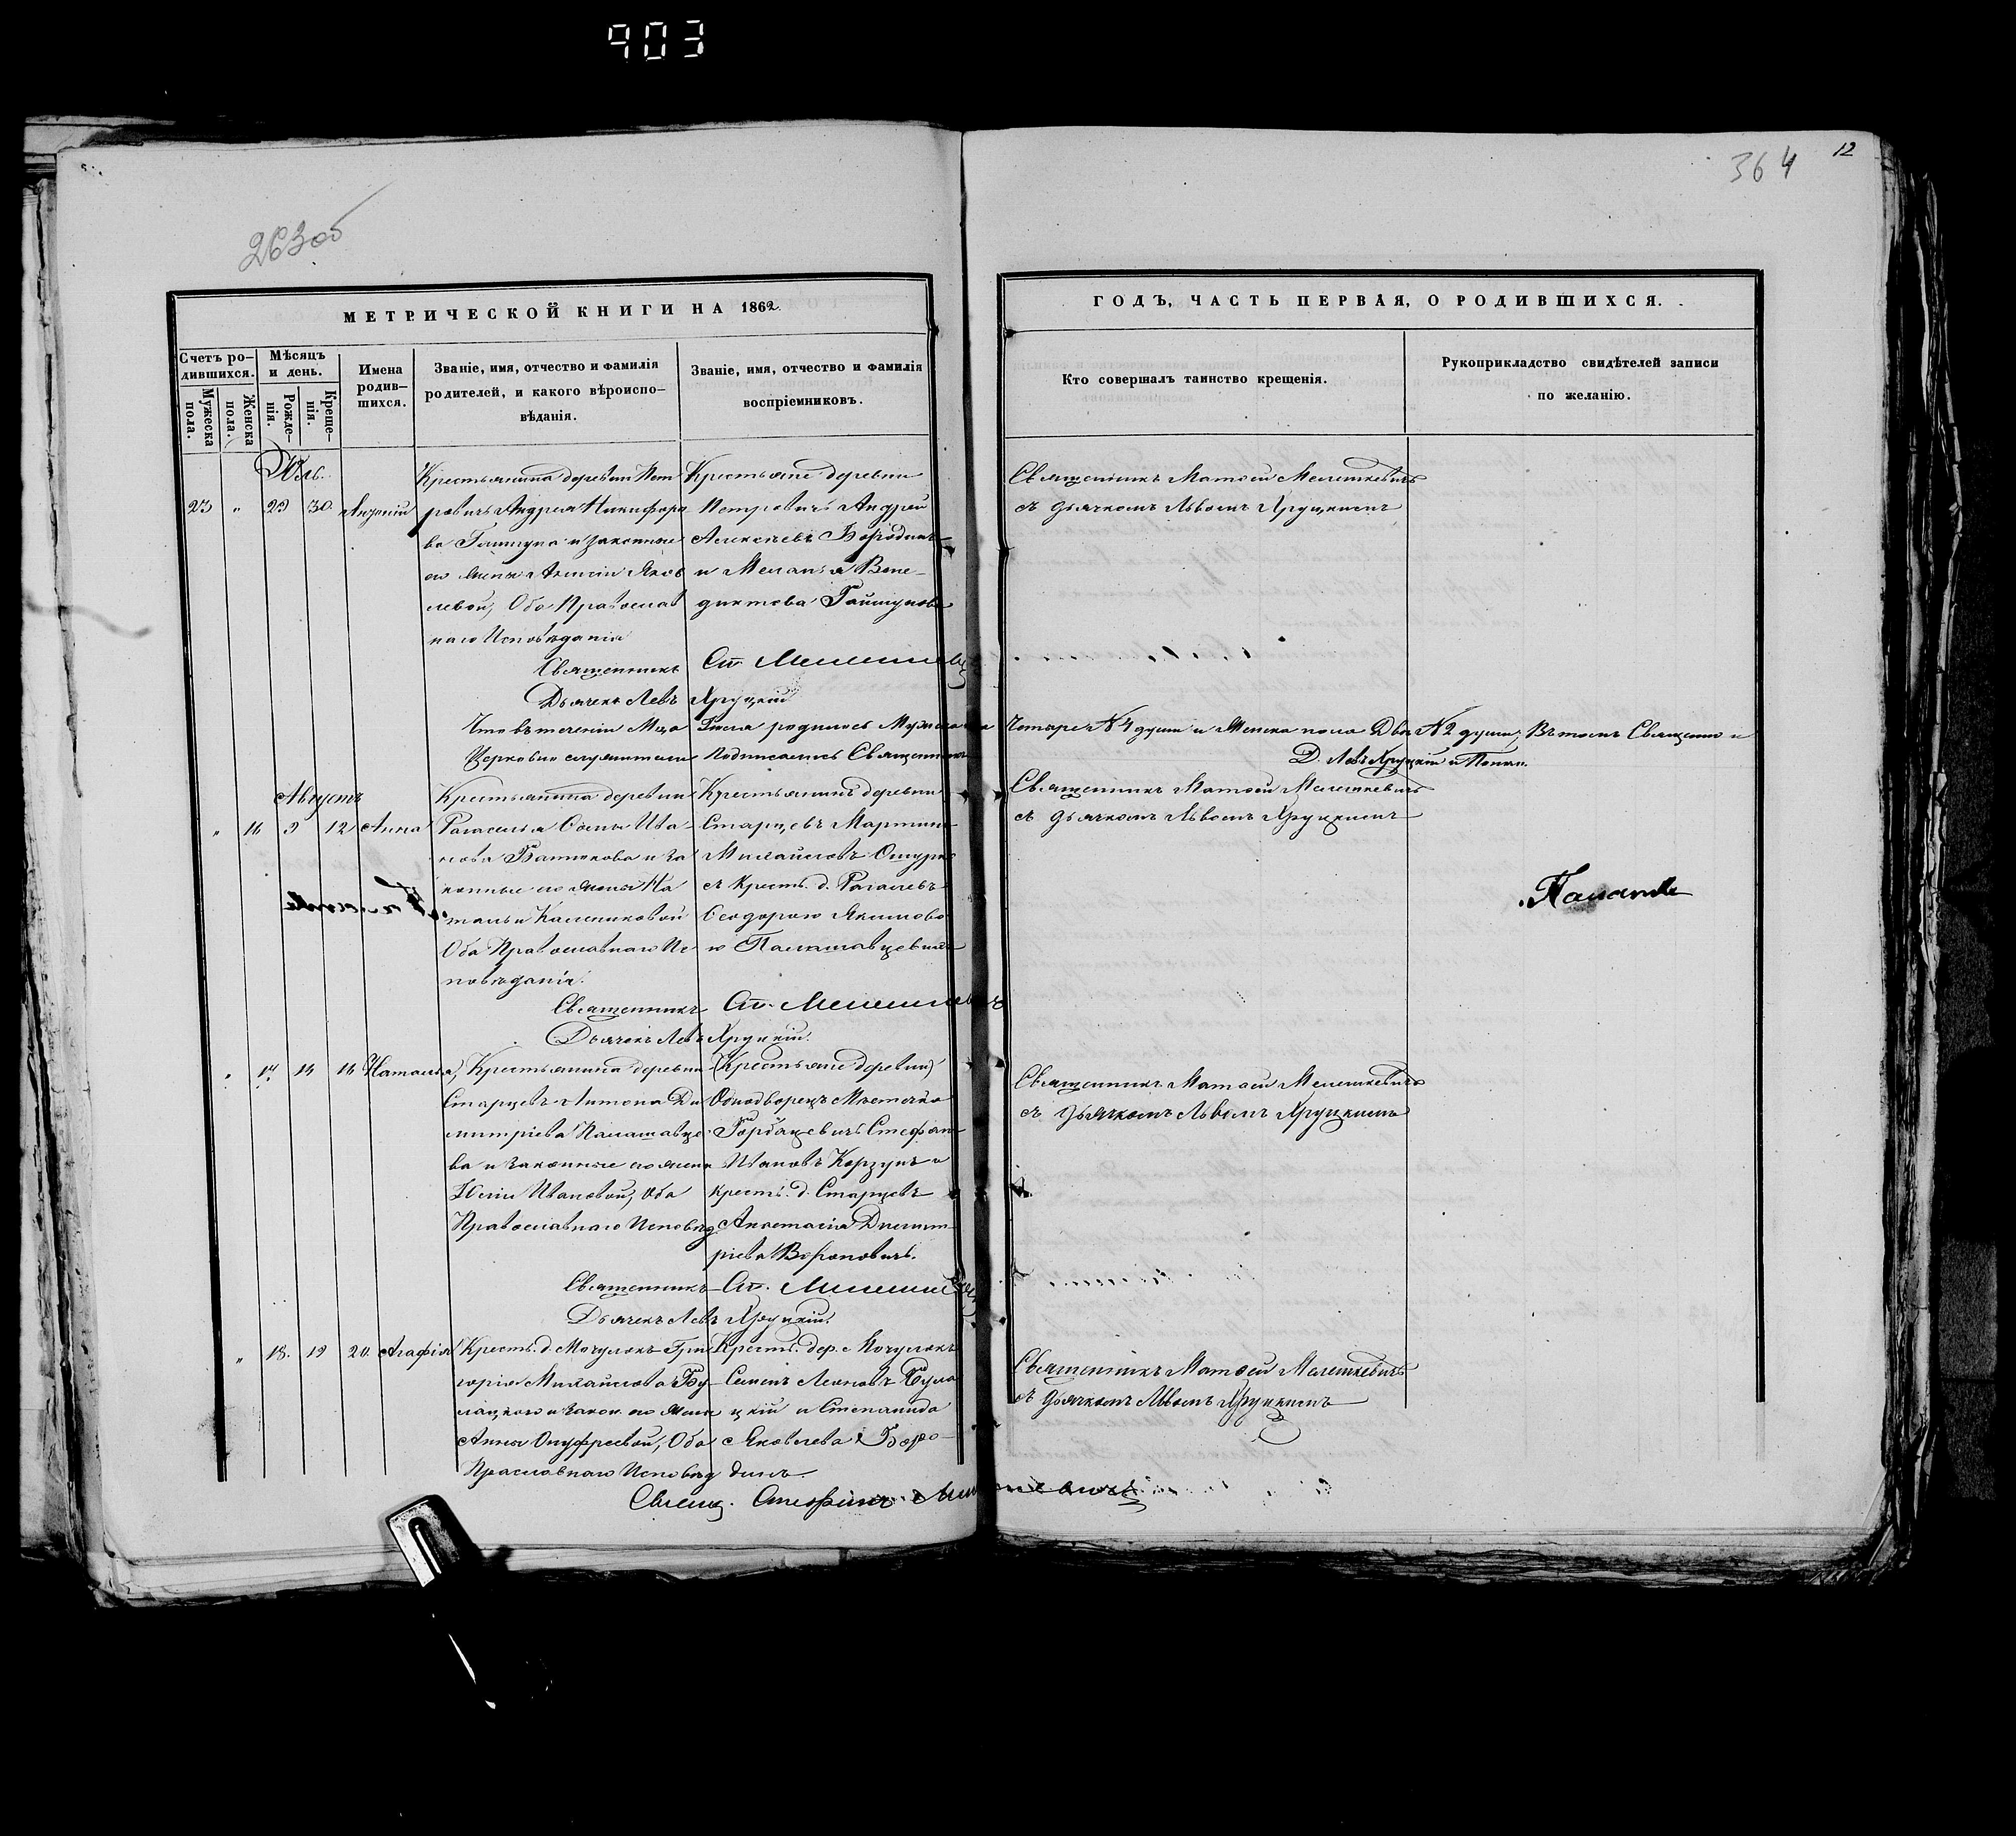 903
364
12
263об
МЕТРИЧЕСКОЙ КНИГИ НА 1862
ГОДЪ, ЧАСТЬ ПЕРВАЯ, О РОДИВШИХСЯ.
Счетъ ро-
дившихся.
Мужеска
пола.
Женска
пола.
Мѣсяцъ
и день.
Рожде-
нія.
Креще-
нія.
Имена
родив-
шихся.
Званіе, имя, отчество и фамилія
родителей, и какого вѣроиспо-
вѣданія.
Званіе, имя, отчество и фамилія
воспріемниковъ.
Кто совершалъ таинство крещенія.
Рукоприкладство свидѣтелей записи
по желанію.
Юль.
23 " 29 30
Крестьянина деревни Пет
ровичь Андрея Никифоро
ва и законные
его жены Яков
левой, Оба Православ
наго Исповѣданія
Крестьяне деревни
Петровичь Андрей
Алексѣевъ Бородинъ
и Меланія Вене-
диктова Гайшунова
Священникъ Матѳей Мелешкевичъ
съ дьячкомъ Львомъ Хруцкимъ
Священникъ Ст. Мелешкевичъ
Дьячекъ Левъ Хруцкій
Что въ теченіи Мца Іюля родилось Мужеска Четыре N 4 души и Женска пола Двѣ N 2 души, Въ томъ Священно и
Церковно служители Подписались Священникъ
Д. Левъ Хруцкій и Поном.
Августъ
" 16 9 12 Анна
Крестьянина деревни
Рагаселья Ива-
нова Батюкова и за
конные его жены На
тальи
Оба Православнаго Ис
повѣданія.
Крестьянинъ деревни
Старцевъ Мартинъ
Михайловъ
съ Крест. д.
Ѳеодорою Якимово
ю
Священникъ Матѳей Мелешкевичъ
съ дьячкомъ Львомъ Хруцкимъ
Священникъ Ст. Мелешкевичъ
Дьячекъ Левъ Хруцкій.
" 17 14 16 Наталья
Крестьянина деревни
Старцевъ Антона Ди
митріева Палашавце
ва и законные его жены
Юліи Ивановой, Оба
Православнаго Исповѣд
Крестьяне деревни
Однодворецъ Мѣстечка
Горбацевичь Стефан
Ивановъ Корзунъ и
Крест. д. Старцевъ
Анастасія Димит
ріева Вороновичь.
Священникъ Матѳей Мелешкевичъ
съ дьячкомъ Львомъ Хруцкимъ
Священникъ Ст. Мелешкевичъ
Дьячекъ Левъ Хруцкій.
" 18. 19 20 Агафія
Крест. д. Мочулокъ Гри
горія Михайлова Бу
лацкого и закон. его жены
Анны Онуфреевой, Оба
Праславнаго Исповѣд
Крест. дер. Мочулокъ
Семенъ Леоновъ Була
цкій и Степанида
Яковлева Боро-
динъ
Священникъ Матѳей Мелешкевичъ
съ дьячкомъ Львомъ Хруцкимъ
Священ. Стефанъ Мелешкевичъ